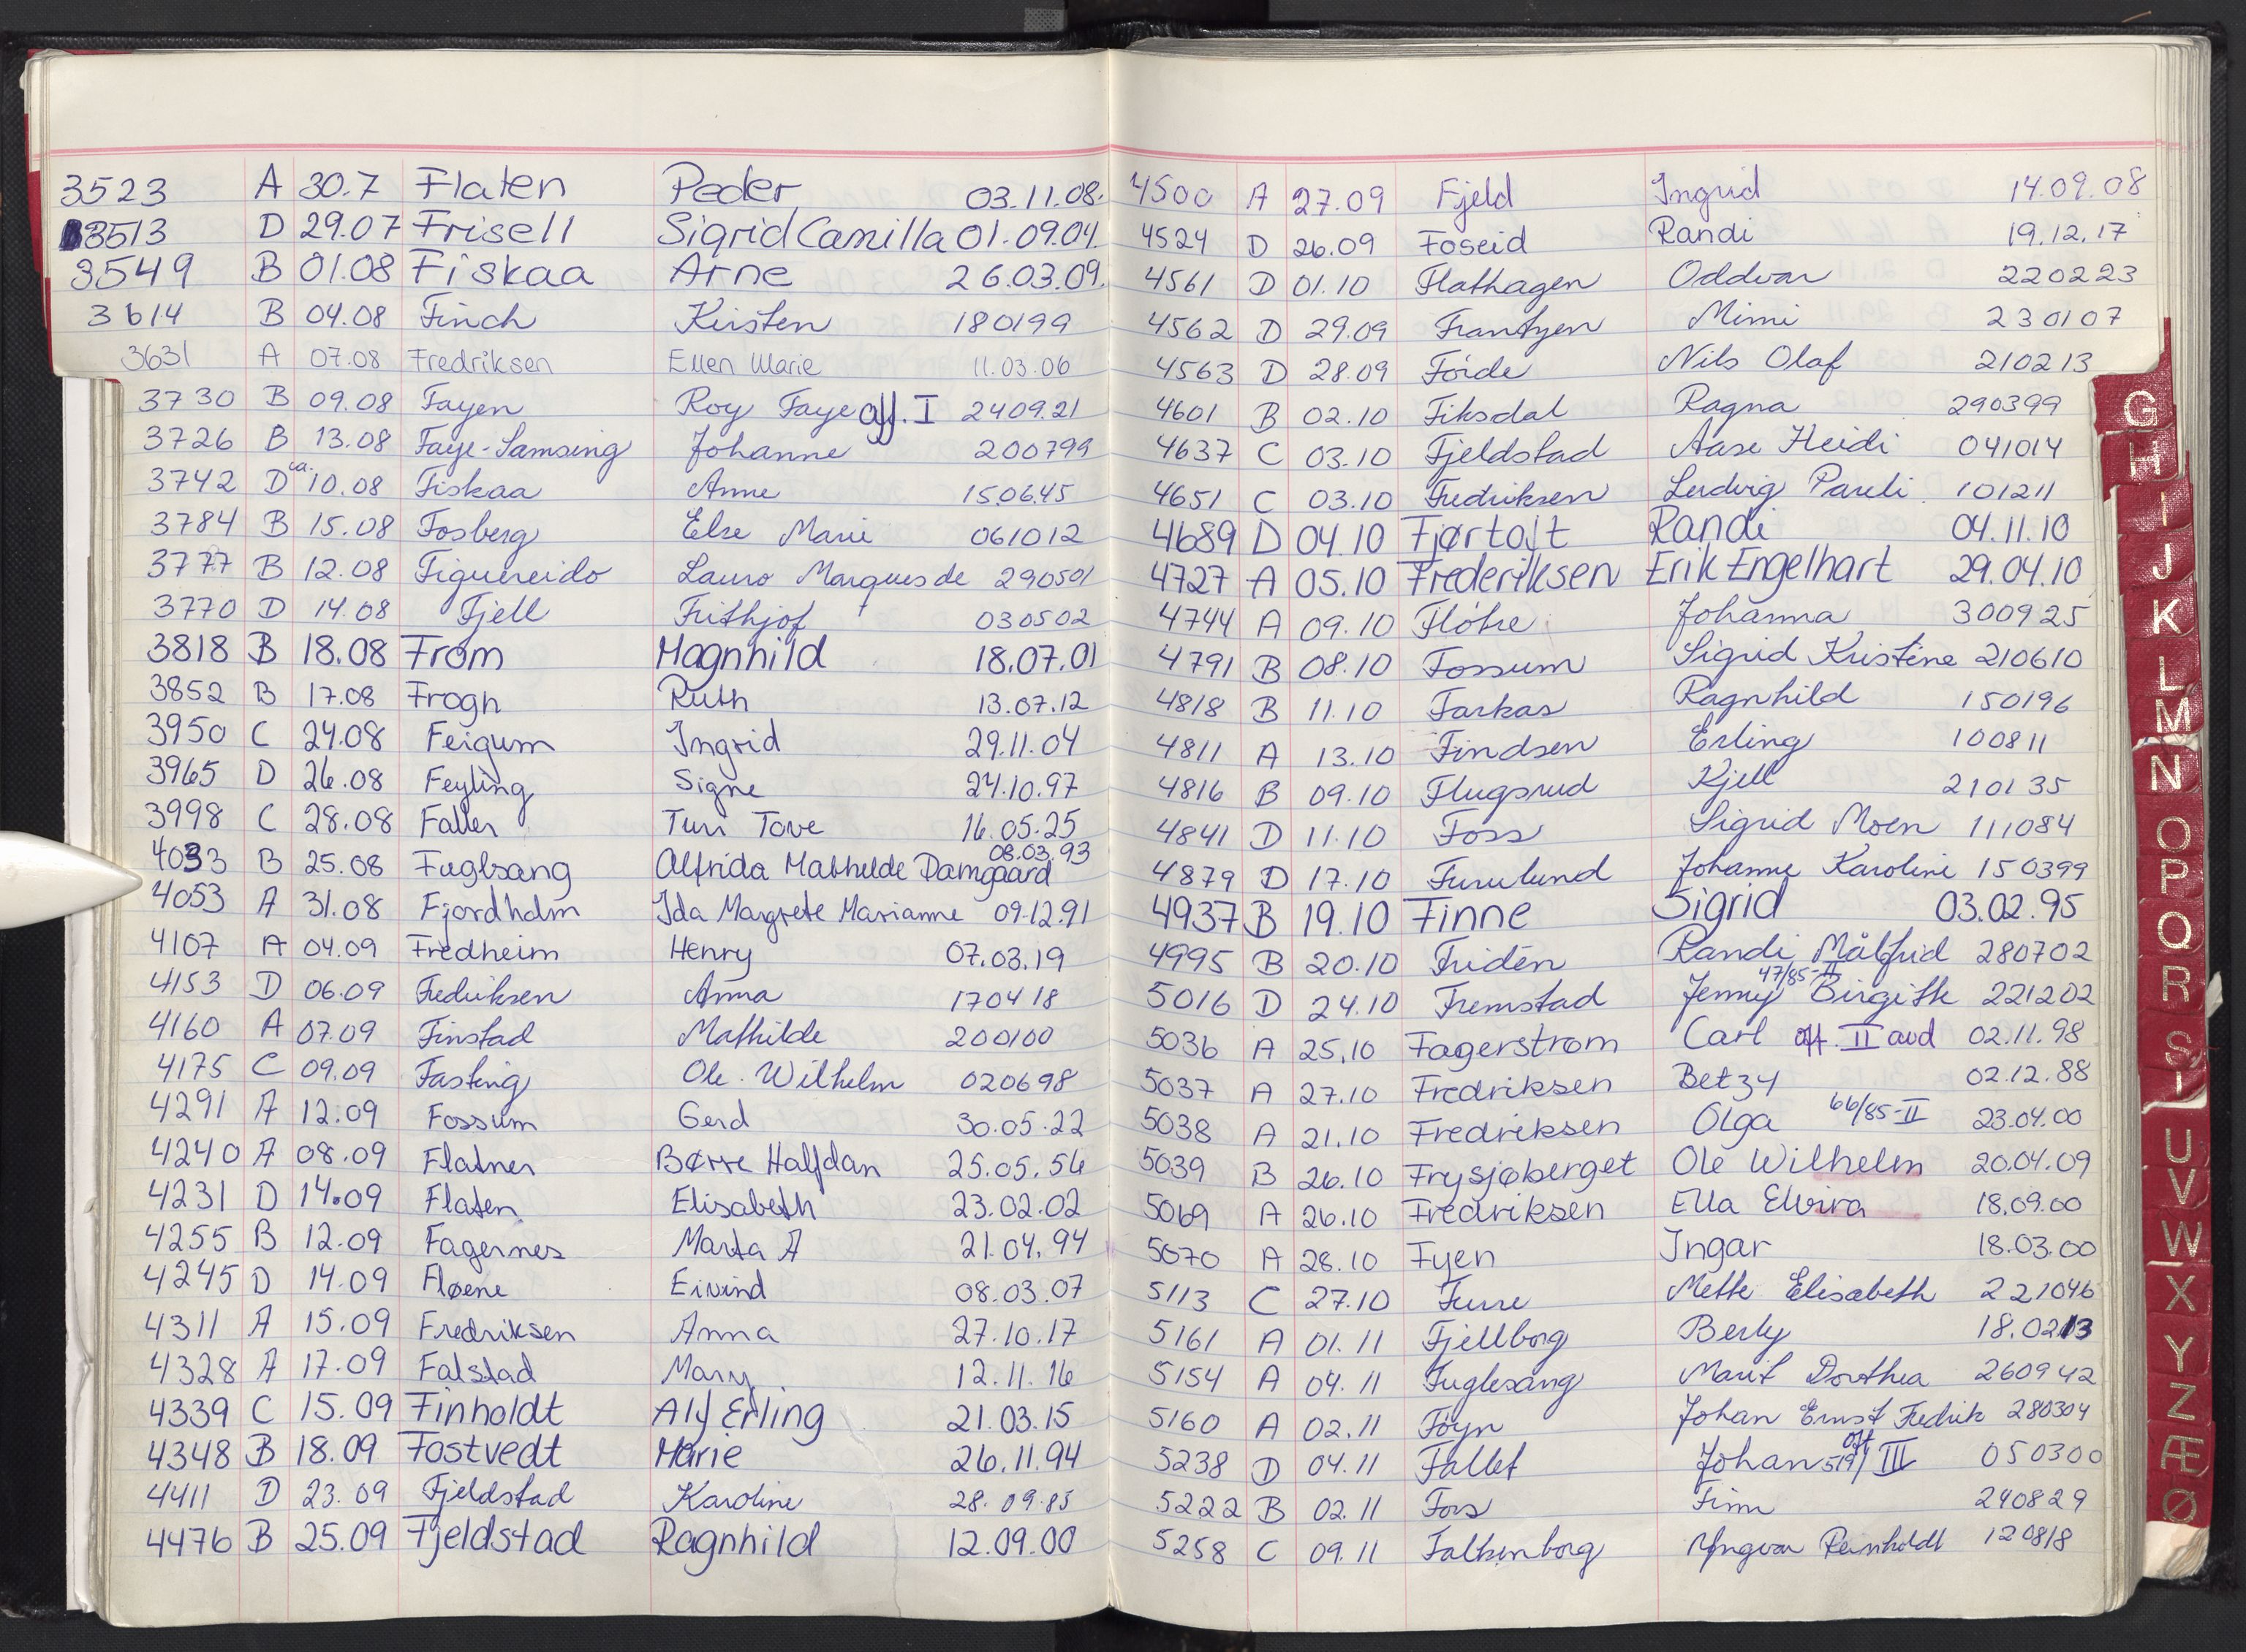 3523 A 30.7 Flaten Peder 03.11.08.
3513 D 29.07 Frisell Sigrid Camilla 01.09.04.
3549 B 01.08 Fiskaa Arne 26.03.09.
3614 B 04.08 Finch Kirsten 180199
3631 A 07.08 Fredriksen Ellen Marie 11.03.06
3730 B 09.08 Fayen Roy Faye off. I 2409.21
3726 B 13.08 Faye-Samsing Johanne 200799
3742 D ca. 10.08 Fiskaa Anne 15.06.45
3784 B 15.08 Fosberg Else Marie 061012
3777 B 12.08 Figuereido Lauro Marques de 290501
3770 D 14.08 Fjell Frithjof 030502
3818 B 18.08 From Magnhild 18.07.01
3852 B 17.08 Frogn Ruth 13.07.12
3950 C 24.08 Feigum Ingrid 29.11.04
3965 D 26.08 Feyling Signe 24.10.97
3998 C 28.08 Faller Turi Tove 16.05.25
4033 B 25.08 Fuglsang Alfrida Mathilde Damgaard 08.03.93
4053 A 31.08 Fjordholm Ida Margrete Marianne 09.12.91
4107 A 04.09 Fredheim Henry 07.03.19
4153 D 06.09 Fredriksen Anna 170418
4160 A 07.09 Finstad Mathilde 200100
4175 C 09.09 Fasting Ole. Wilhelm 020698
4291 A 12.09 Fossum Gerd 30.05.22
4240 A 08.09 Flatner Børre Halfdan 25.05.56
4231 D 14.09 Flaten Elisabeth 23.02.02
4255 B 12.09 Fagernes Marta A 21.04.94
4245 D 14.09 Fløene Eivind 08.03.07
4311 A 15.09 Fredriksen Anna 27.10.17
4328 A 17.09 Falstad Mary 12.11.16
4339 C 15.09 Finholdt Alf Erling 21.03.15
4348 B 18.09 Fostvedt Marie 26.11.94
4411 D 23.09 Fjeldstad Karoline 28.09.85
4476 B 25.09 Fjeldstad Ragnhild 12.09.00
4500 A 27.09 Fjeld Ingrid 14.09.08
4524 D 26.09 Foseid Randi 19.12.17
4561 D 01.10 Flathagen Oddvar 220223
4562 D 29.09 Frantzen Mimi 230107
4563 D 28.09 Förde Nils Olaf 210213
4601 B 02.10 Fiksdal Ragna 290399
4637 C 03.10 Fjeldstad Aase Heidi 041014
4651 C 03.10 Fredriksen Ludvig Pareli 101211
4689 D 04.10 Fjørtoft Randi 04.11.10
4727 A 05.10 Frederiksen Erik Engelhart 29.04.10
4744 A 09.10 Flötre Johanna 300925
4791 B 08.10 Fossum Sigrid Kristine 210610
4818 B 11.10 Farkas Ragnhild 150196
4811 A 13.10 Findsen Erling 100811
4816 B 09.10 Flugsrud Kjell 210135
4841 D 11.10 Foss Sigrid Moen 111084
4879 D 17.10 Furulund Johanne Karoline 150399
4937 B 19.10 Finne Sigrid 03.02.95
4995 B 20.10 Fridén Randi Målfrid 280702
5016 D 24.10 Fremstad Jenny Birgitte 47/85-II 221202
5036 A 25.10 Fagerstrøm Carl off. II avd 02.11.98
5037 A 27.10 Fredriksen Betzy 02.12.88
5038 A 21.10 Fredriksen Olga 66/85-II 23.04.00
5039 B 26.10 Frysjøberget Ole Wilhelm 20.04.09
5069 A 26.10 Fredriksen Ella Elvira 18.09.00
5070 A 28.10 Fyen Ingar 18.03.00
5113 C 27.10 Furre Mette Elisabeth 221046
5161 A 01.11 Fjellborg Berly 18.0213
5154 A 04.11 Fuglesang Marit Dorthea 260942
5160 A 02.11 Föyn Johan Ernst Fredrik 280304
5238 D 04.11 Fallet Johan off III 050300
5222 B 02.11 Fors Finn 240829
5258 C 09.11 Falkenborg Yngvar Reinholdt 120818
G
H
I
J
K
L
M
N
O
P
Q
R
S
U
V
W
X
Y
Z
Æ
Ø